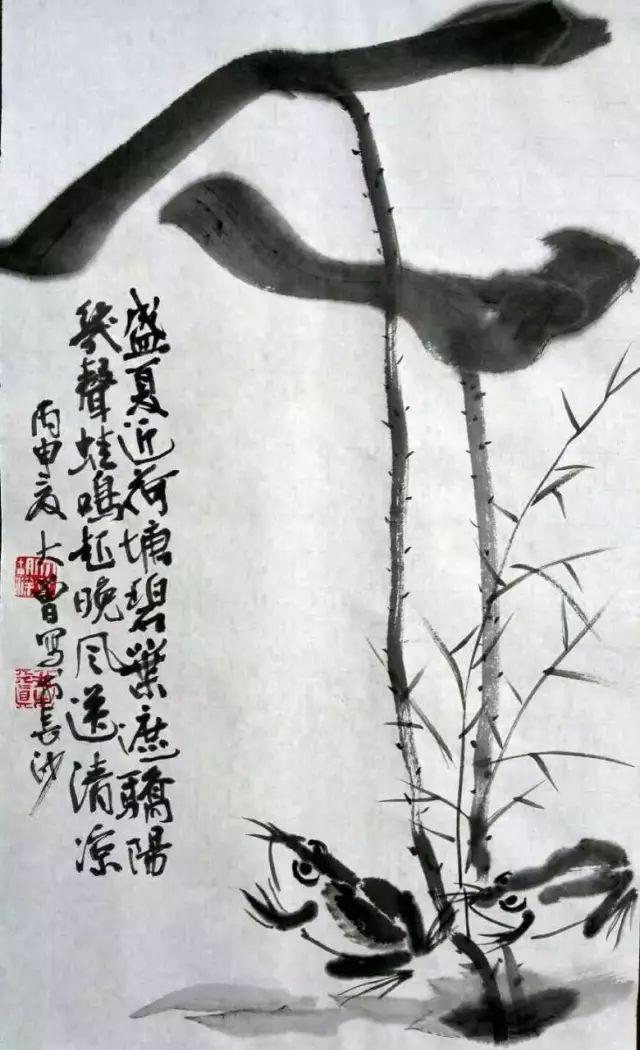 盛夏近荷塘碧葉遮驕陽
幾聲蛙鳴起晚风送清凉
丙申夏大曾写於長沙